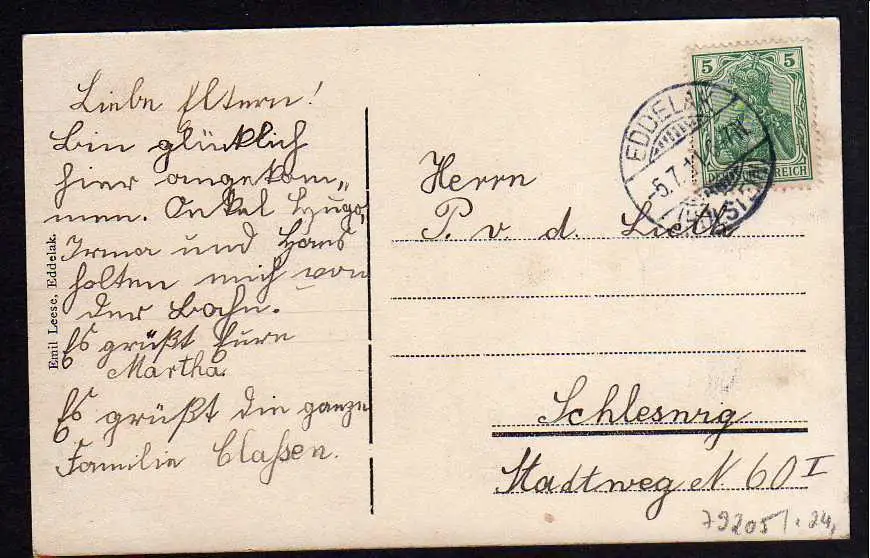 Liebe Eltern!
Bin glücklich
hier angekom„
men. Onkel Hugo,
Irma und Hans
holten mich von
der Bahn.
Es grüßt Eure
Martha.
Es grüßt die ganze
Familie Claßen.
Emil Leese, Eddelak.
5 5
REICH
EDDELAK
5.7.1
(HOLSTEIN)
Herrn
P. v. d. Lieth
Schleswig
Stadtweg N 60 I
79205/.24,